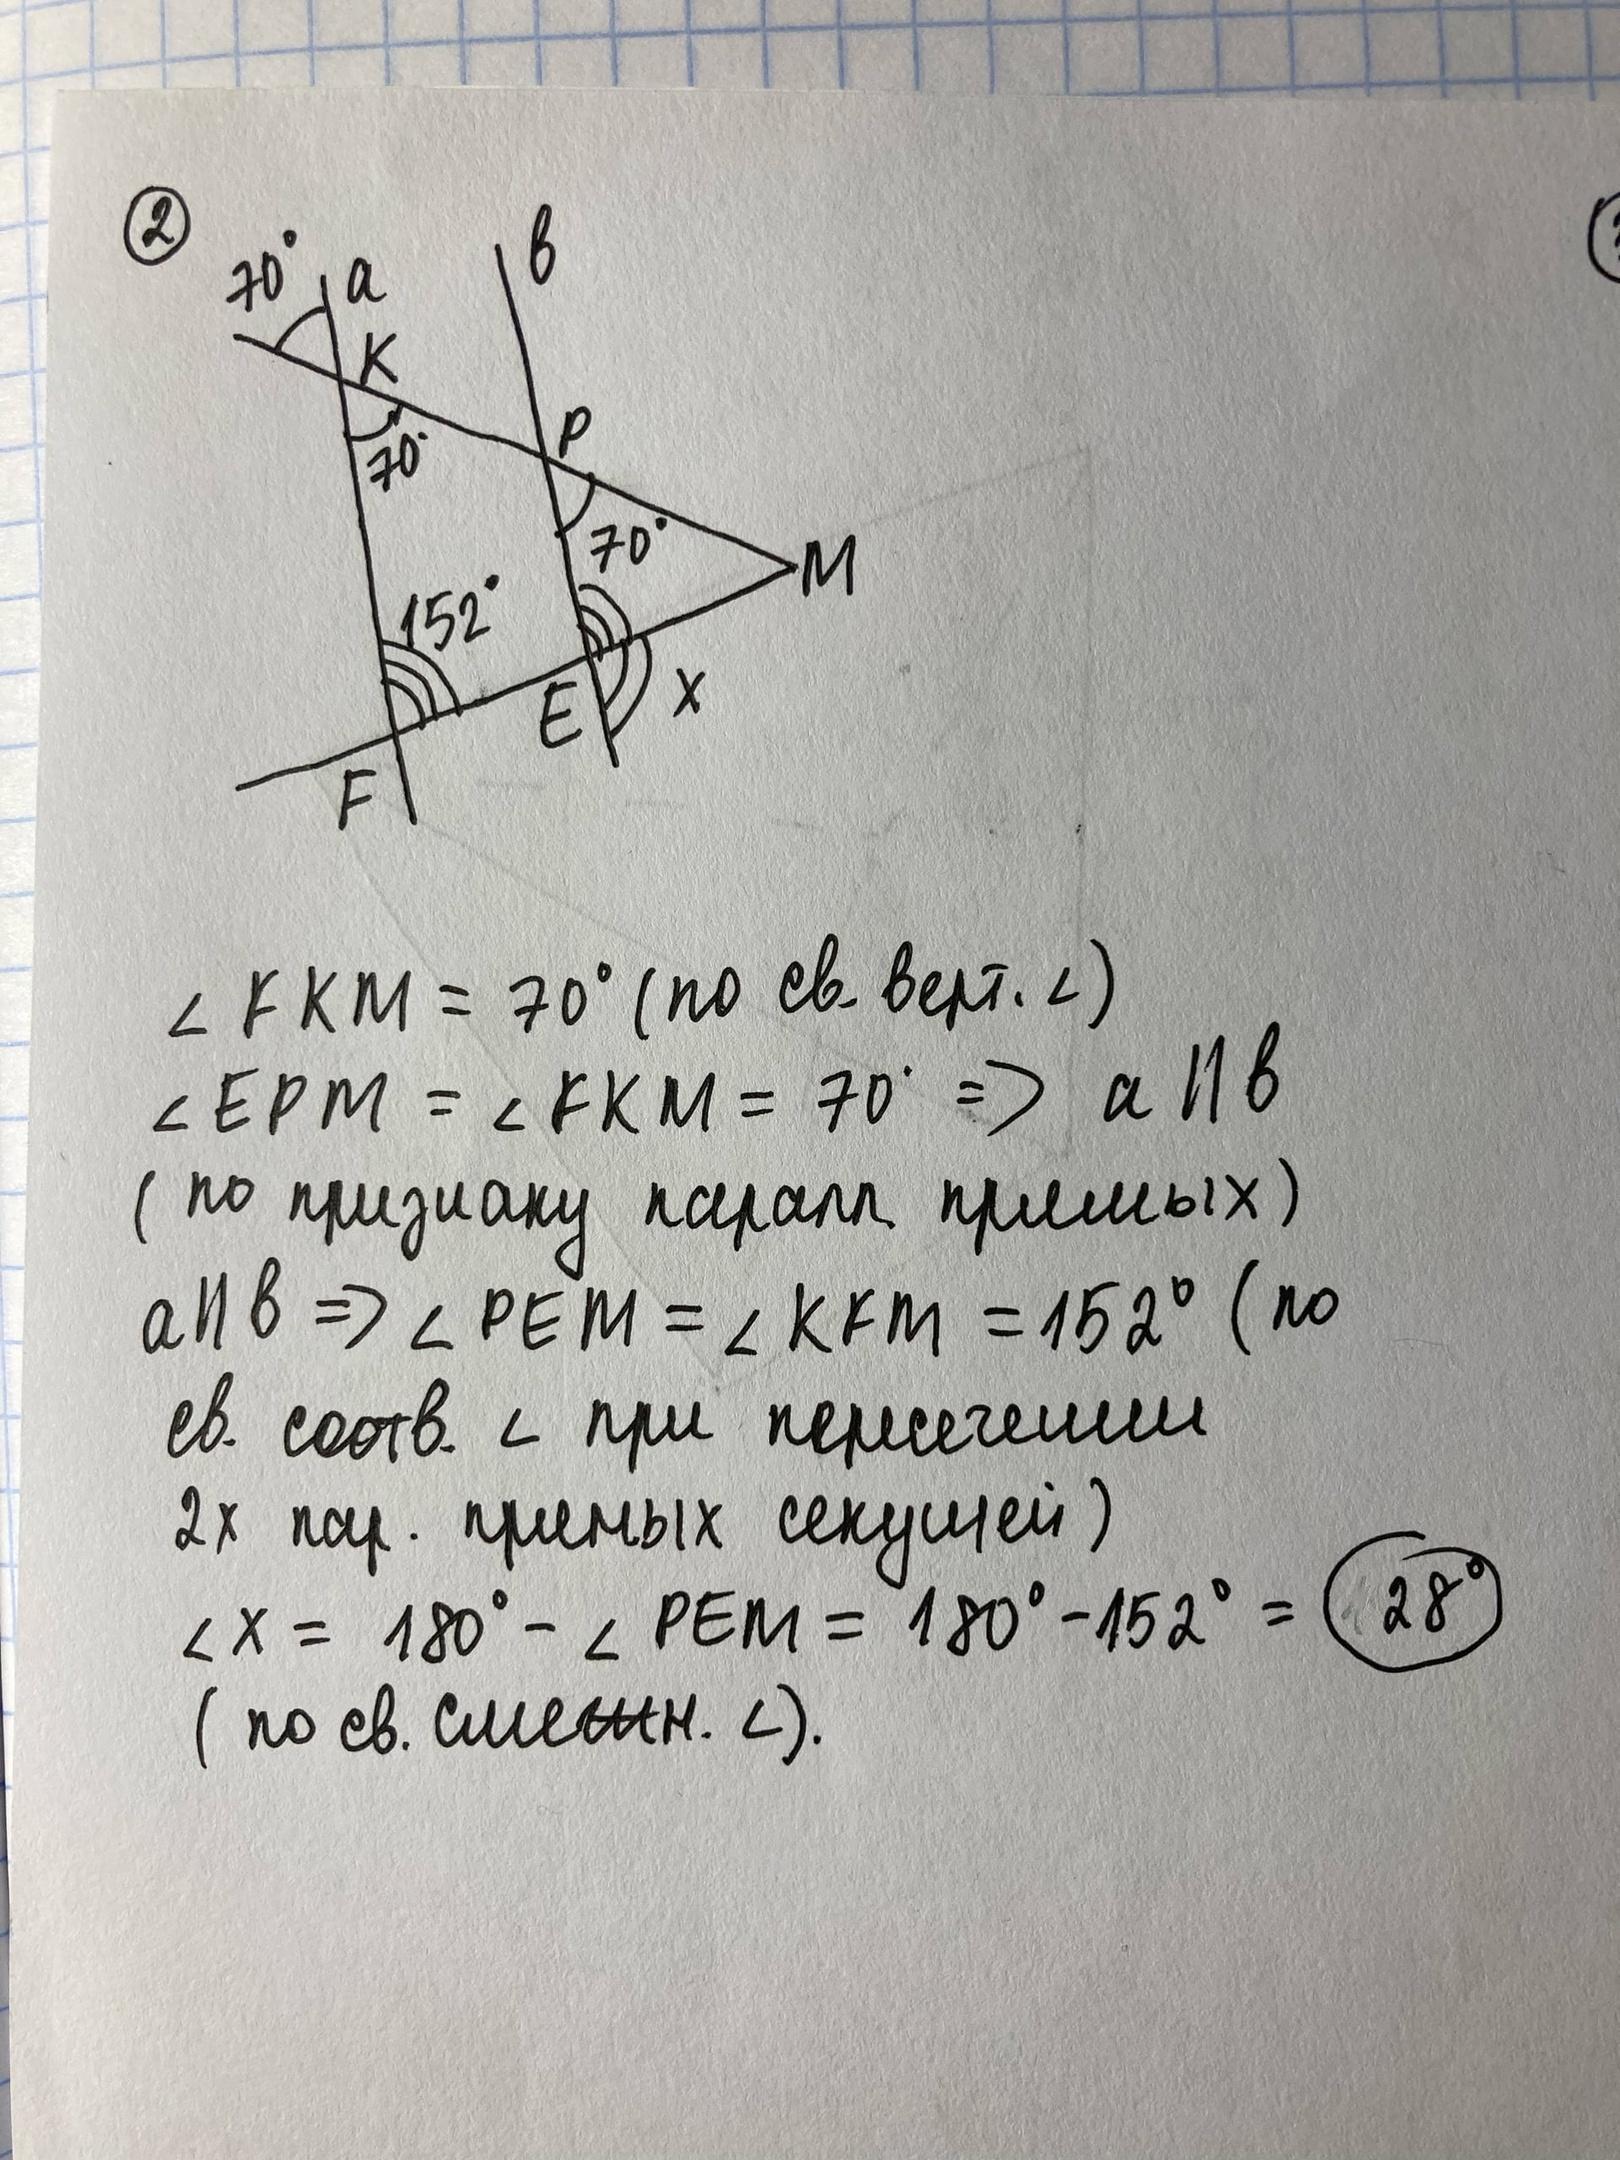 2
70° a b
K
70°
P
70°
M
152°
E x
F
∠FKM = 70° (по св. верт. ∠)
∠EPM = ∠FKM = 70° => a || b
(по признаку паралл. прямых)
a || b => ∠PEM = ∠KFM = 152° (по
св. соотв. ∠ при пересечении
2х пар. прямых секущей)
∠x = 180° - ∠PEM = 180° - 152° = 28°
(по св. смежн. ∠).